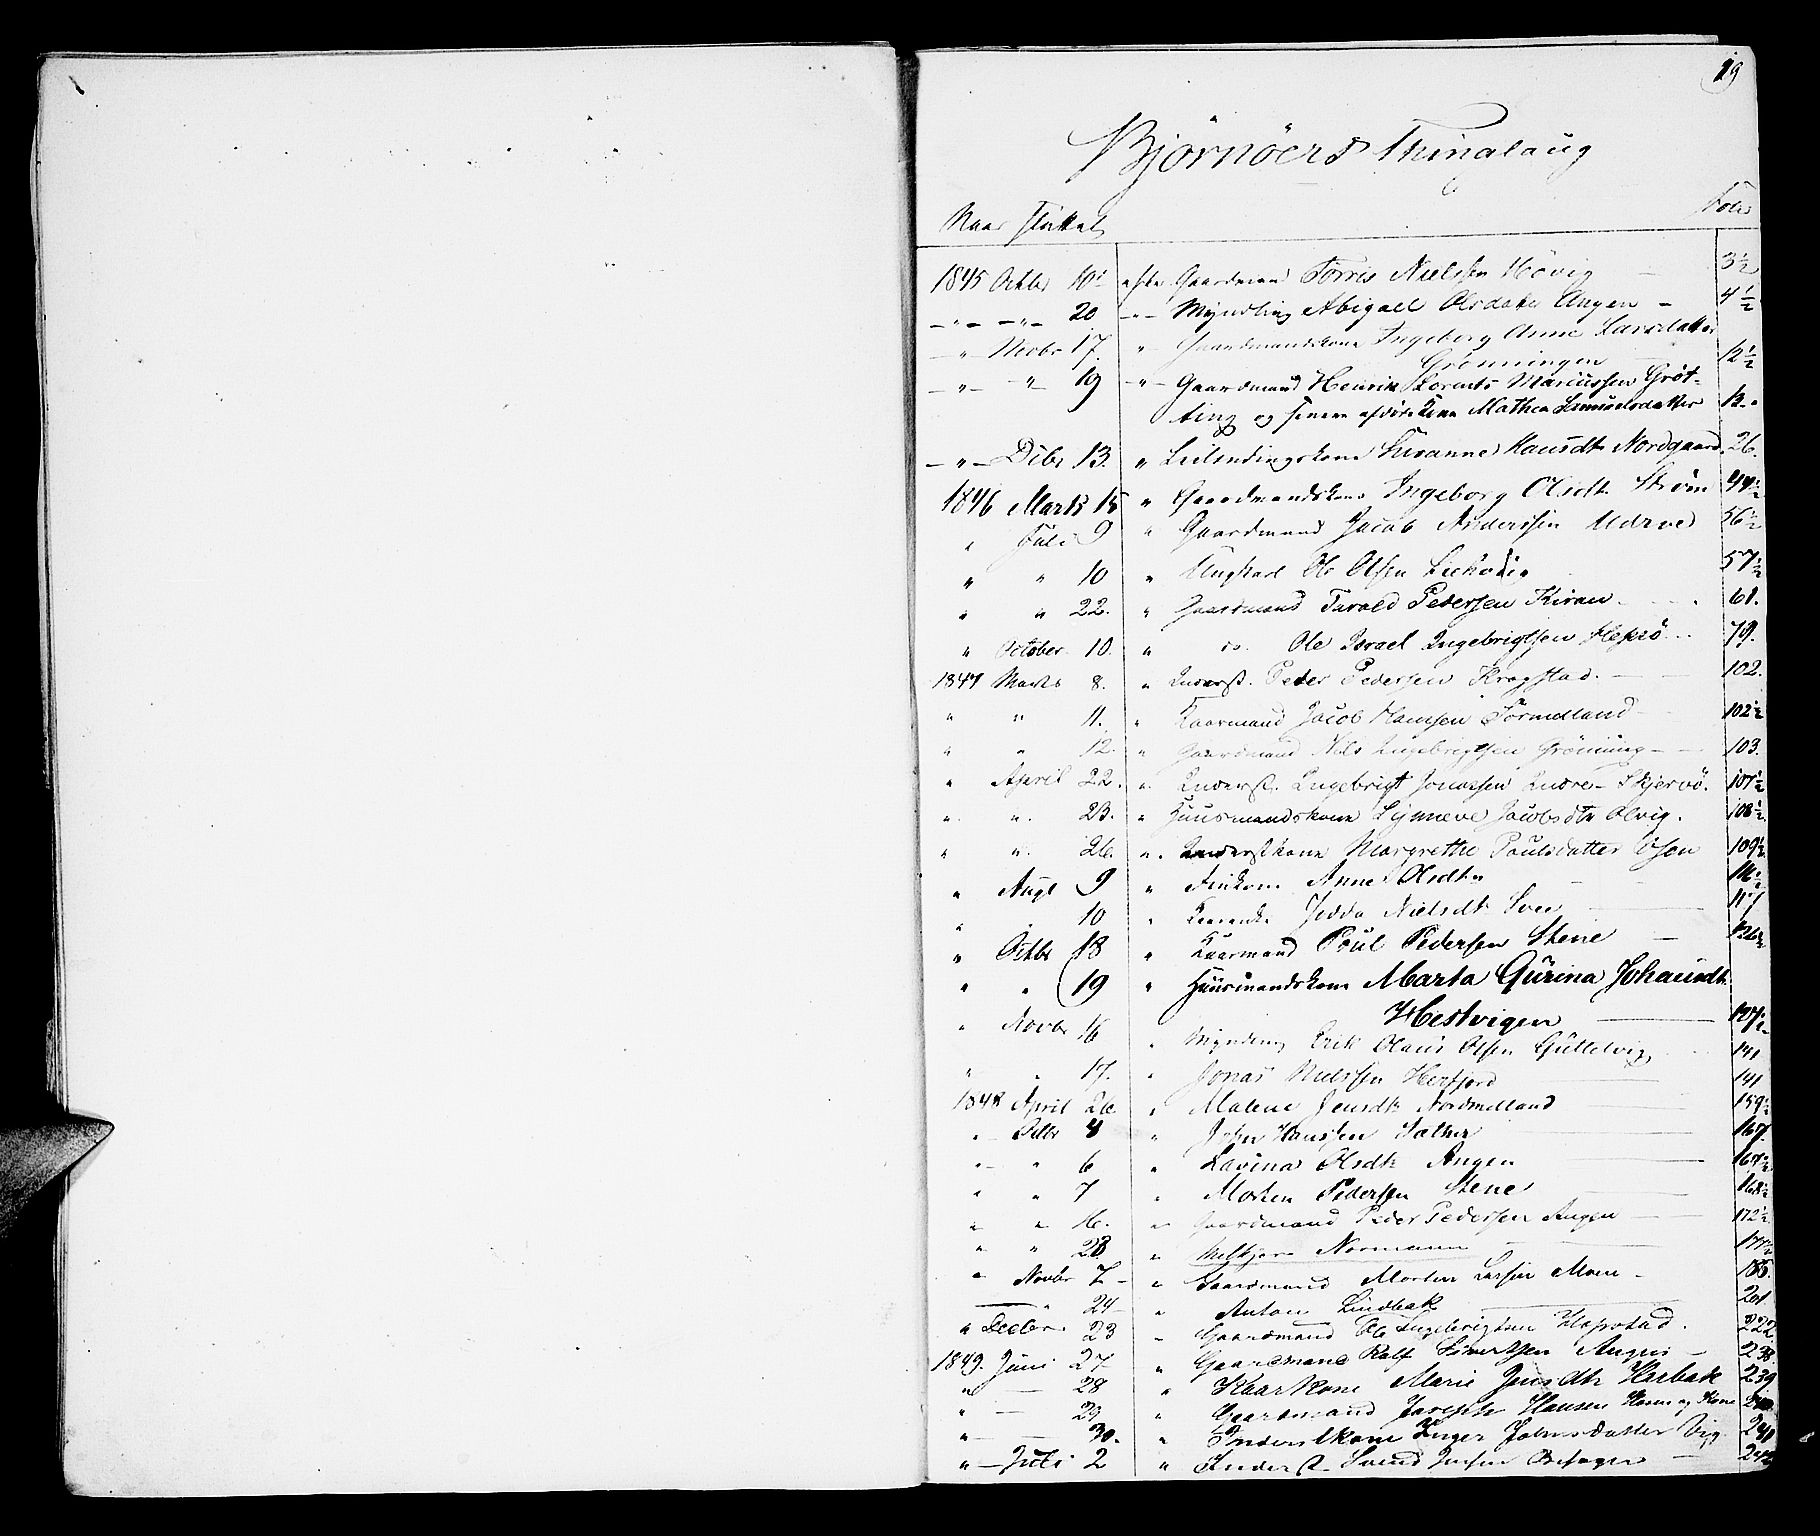 19
Bjørnøers Thinglaug
Naar skiftet Folio
1845 Octbr 10 efter Gaardmand Torris Nielsen Hövig 3½
— " — — " — 20 — " — Myndling Abigael Olsdatter Angen — 4½
— " Novbr 17. " Gaardmandskone Ingeborg Anne Larsdatter
Grönningen 12½
— " — " 19 — " — Gaardmand Henrik Lorents Mariussen Gröt-
ting og Kone Mathea Samuelsdatter
— " — Dcbr 13. " Leilendingskone Susanne Hansdtr Nordgaard 26.
1846 Marts 15 " Gaardmandskone Ingeborg Olsdtr Ström 44½
" Juli 9 " Gaardmand Jacob Anderssen 56½
" " 10 " Ungkarl Ole Olsen 57½
" " 22. " Gaardmand Tarald Pedersen Kiran 61.
" October 10. " do. Ole Israel Ingebrigtsen 79.
1847 Marts 8. " Inderst. Peder Pedersen Kragstad. 102.
" " 11. " Kaarmand Jacob Hansen Sörmelland 102½
" " 12. " Gaardmand Nils Ingebrigtsen Gröning 103.
" April 22. " Inderst. Ingebrigt Jonassen Indre-Skjervö. 107½
" " 23. " Huusmandskone Synneve Jacobsdtr Olvig. 108½
" " 26. " Inderstkone Margrethe Paulsdatter Osen 109½
" Augt 9 " Finkone Anne Olsdtr
" " 10 " Jedda Nielsdtr 117
" Octbr 18 " Kaarmand Poul Pedersen Stene
" " 19 " Huusmandskone Marta Gurina Johansdtr
Hestvigen 127½
" Novbr 16 " Myndling Erik Olaus Olsen 141
" " 17. " Jonas Nielssen Herfjord 141
1848 April 26. " Malene Jensdtr Nordmelland 159½
" Octbr 4 " John Hanssen Sæther 167.
" " 6 " Lavina Olsdtr Angen 167½
" " 7 " Morten Pedersen Stene 168½
" " 16. " Gaardmand Peder Pedersen Angen 172½
" " 28 " Normann 177½
" Novbr 7 " Gaardmand Morten Larsen Moen 185.
" 24 " Anton Lindbak 201
" Decbr 23 " Gaardmand Ole Ingebrigtsen Hopstad. 222
1849. Juni 27 " Gaardmand Rolf Sivertsen Angen 238
" — 28 " Kaarkone Marie Jensdtr Herbak 239
" — 29 " Gaardmand Joseph Hansen og Kone
" — 30. " Inderstkone Inger Johnsdatter Vig 241
" — Juli 2 " Inderst. Svend Jensen 242